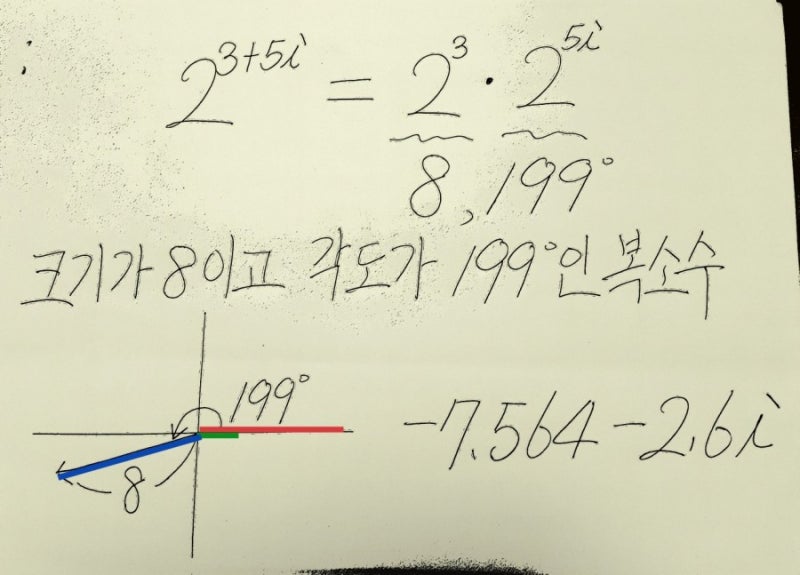 2^{3+5i} = 2^3 · 2^{5i}
8, 199°
크기가 8이고 각도가 199°인 복소수
199°
-7.564-2.6i
8